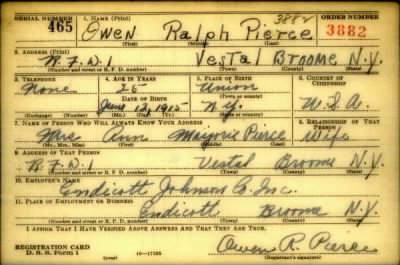 SERIAL NUMBER 465
1. NAME (Print) 3882 ORDER NUMBER 3882
Owen Ralph Pierce
(First) (Middle) (Last)
2. ADDRESS (Print)
R.F.D.1 Vestal Broome N.Y.
(Number and street or R. F. D. number) (Town) (County) (State)
3. TELEPHONE 4. AGE IN YEARS 5. PLACE OF BIRTH 6. COUNTRY OF CITIZENSHIP
None 25 Union
DATE OF BIRTH (Town or county)
June 12, 1915 N.Y. U.S.A.
(Exchange) (Number) (Mo.) (Day) (Yr.) (State or country)
7. NAME OF PERSON WHO WILL ALWAYS KNOW YOUR ADDRESS 8. RELATIONSHIP OF THAT PERSON
Mrs. Ann Marjorie Pierce Wife
(Mr., Mrs., Miss) (First) (Middle) (Last)
9. ADDRESS OF THAT PERSON
R.F.D.1 Vestal Broome N.Y.
(Number and street or R. F. D. number) (Town) (County) (State)
10. EMPLOYER'S NAME
Endicott Johnson Co. Inc.
11. PLACE OF EMPLOYMENT OR BUSINESS
Endicott Broome N.Y.
(Number and street or R. F. D. number) (Town) (County) (State)
I AFFIRM THAT I HAVE VERIFIED ABOVE ANSWERS AND THAT THEY ARE TRUE.
REGISTRATION CARD
D. S. S. Form 1 16-17105 Owen R. Pierce
(Registrant's signature)